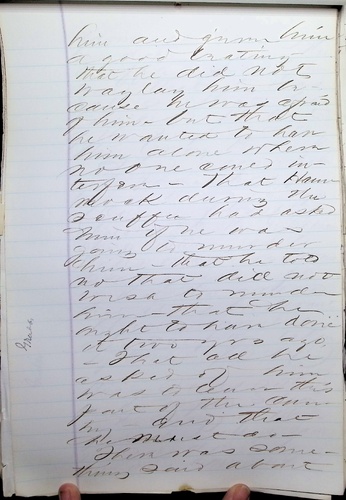 him and given him
a good beating
that he did not
waylay him be-
cause he was afraid
of him - but that
he wanted to have
him alone where
no one could in-
terfere - That Ham-
mock during the
scuffle had asked
him if he was
going to murder
him - that he told
no that did not
wish to murder
him - that he
ought to have done
it two yrs ago,
- That all he
asked of him
was to leave this
part of the coun-
try - and that
he must do -
There was some-
thing said about